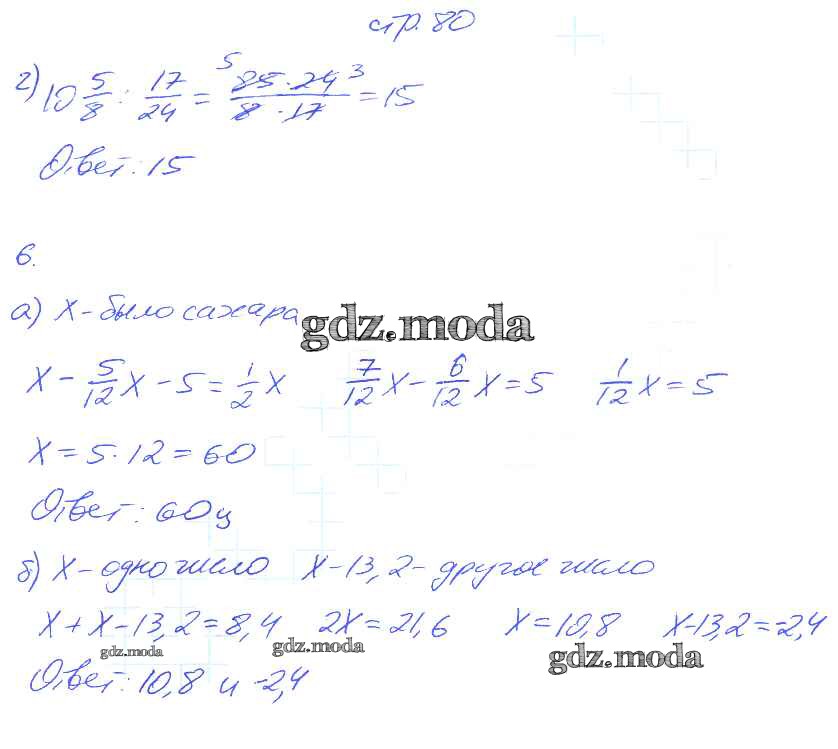 стр. 80
г) 10 5/8 : 17/24 = 5 85 · 24 3 / 8 · 17 = 15
Ответ: 15
6.
а) x - было сахара
gdz.moda
x - 5/12 x - 5 = 1/2 x 7/12 x - 6/12 x = 5 1/12 x = 5
x = 5 · 12 = 60
Ответ: 60 ц
б) x - одно число x - 13,2 - другое число
x + x - 13,2 = 8,4 2x = 21,6 x = 10,8 x - 13,2 = -2,4
gdz.moda gdz.moda gdz.moda
Ответ: 10,8 и -2,4